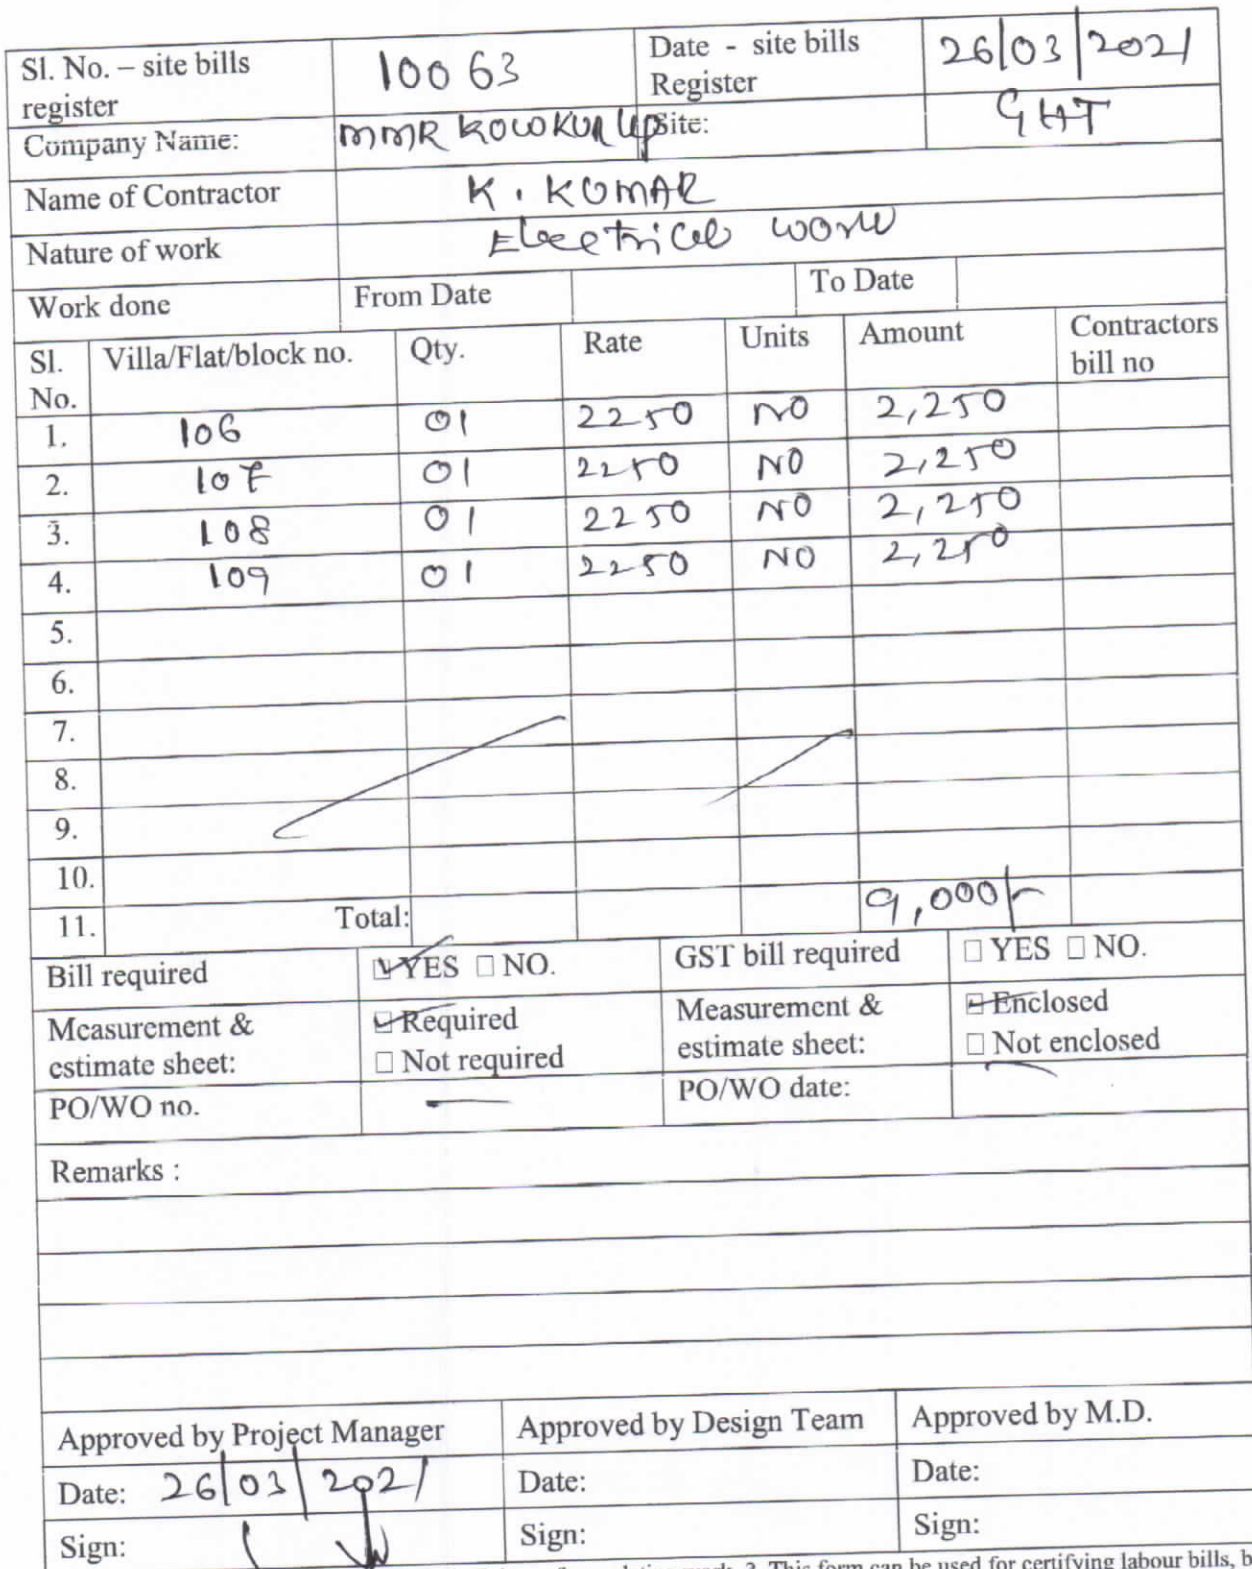 Sl. No. – site bills register 10063 Date - site bills Register 26/03/2021
Company Name: MMR KOWKUR LLP Site: GHT
Name of Contractor K. KUMAR
Nature of work Electrical work
Work done From Date To Date
Sl. No. Villa/Flat/block no. Qty. Rate Units Amount Contractors bill no
1. 106 01 2250 NO 2,250
2. 107 01 2250 NO 2,250
3. 108 01 2250 NO 2,250
4. 109 01 2250 NO 2,250
5.
6.
7.
8.
9.
10.
11. Total: 9,000/-
Bill required ☑ YES □ NO. GST bill required □ YES □ NO.
Measurement & estimate sheet: ☑ Required □ Not required Measurement & estimate sheet: ☑ Enclosed □ Not enclosed
PO/WO no. — PO/WO date: —
Remarks :
Approved by Project Manager Approved by Design Team Approved by M.D.
Date: 26/03/2021 Date: Date:
Sign: Sign: Sign:
3. This form can be used for certifying labour bills, b